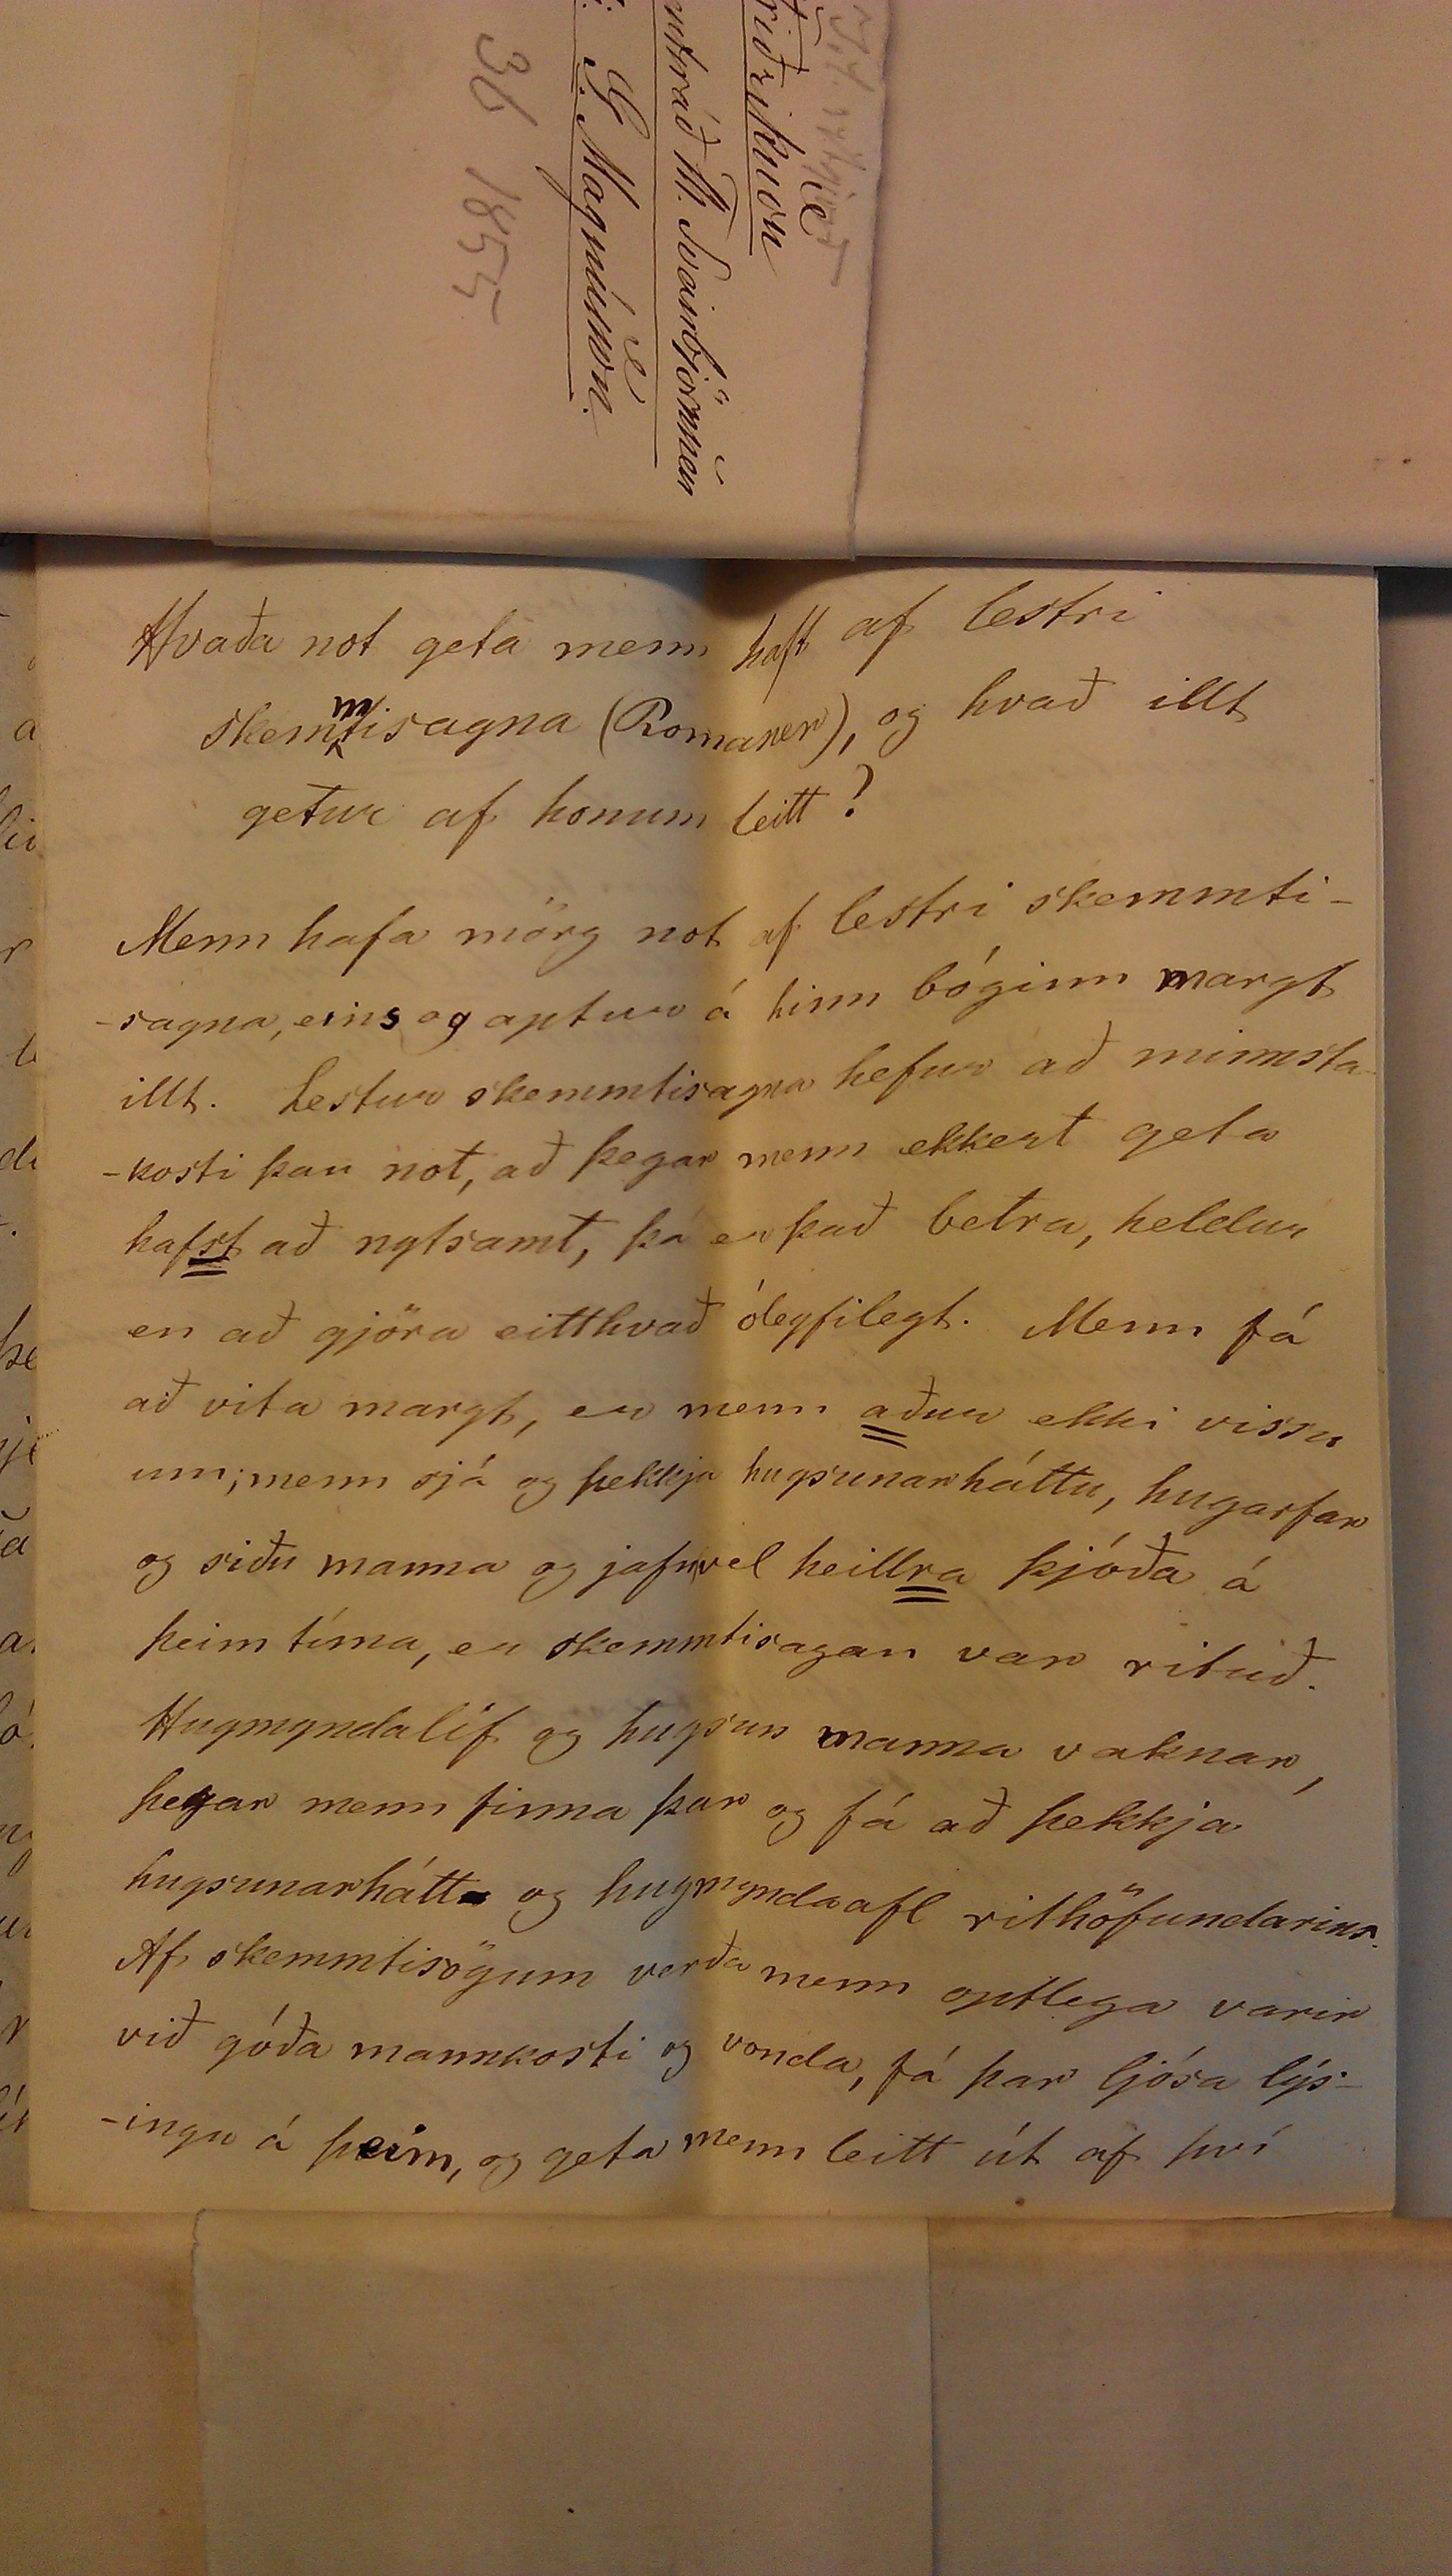 riðriksson
M. Sveinbjörnsen
G. Magnússon.
36 1855
Hvaða not geta menn haft af lestri
skemmtisagna (Romaner), og hvað illt
getur af honum leitt?
Menn hafa mörg not af lestri skemmti-
-sagna, eins og aptur á hinn bóginn margt
illt. Lestur skemmtisagna hefur að minnsta
-kosti þau not, að þegar menn ekkert geta
hafst að nytsamt, þá er það betra, heldur
en að gjöra eitthvað óleyfilegt. Menn fá
að vita margt, er menn aður ekki vissu
um; menn sjá og þekkja hugsunarháttu, hugarfar
og siðu manna og jafnvel heillra þjóða á
þeim tíma, er skemmtisagan var rituð.
Hugmyndalíf og hugsun manna vaknar,
þegar menn finna þar og fá að þekkja
hugsunarhátt og hugmyndaafl rithöfundarins.
Af skemmtisögum verða menn optlega varir
við góða mannkosti og vonda, fá þar ljósa lýs-
-ingu á þeim, og geta menn leitt út af því